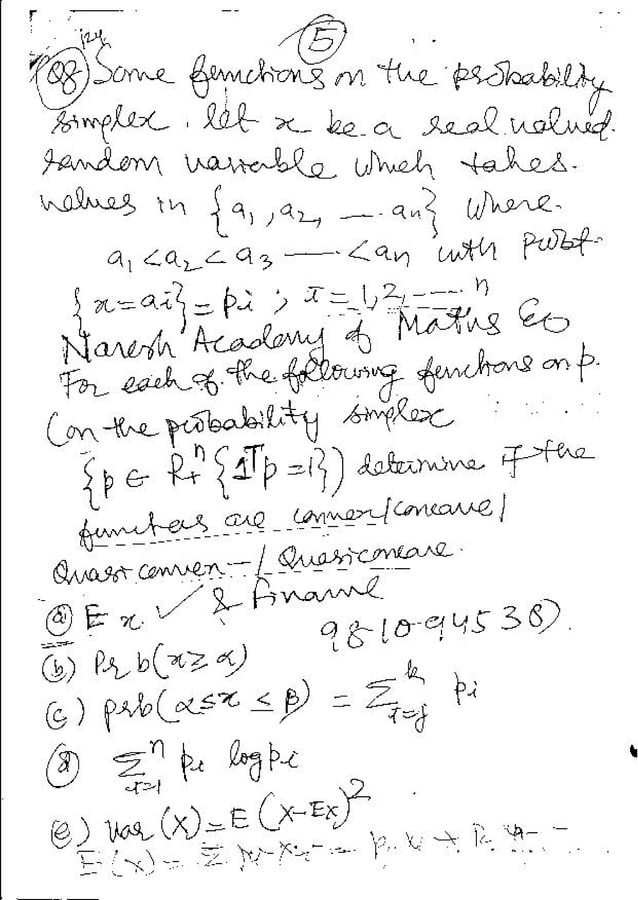 5
Q8 Some functions on the probability
simplex. let x be a real valued
random variable which takes
values in {a1, a2, — an} where
a1 < a2 < a3 —— < an with prob
{x = ai} = pi ; i = 1, 2, --- n
Naresh Academy of Maths Eco
For each of the following functions on p.
(on the probability simplex
{p ∈ R+^n {1^T p = 1}) determine if the
functions are convex/concave/
Quasi convex - / Quasiconcave.
(a) E x. ✓ & Finance
9810945 38).
(b) Prb(x ≥ α)
(c) prb(α ≤ x ≤ β) = Σ_{i=j}^{k} pi
(d) Σ_{i=1}^{n} pi log pi
(e) Var (X) = E (X - EX)^2
E(x) = Σ